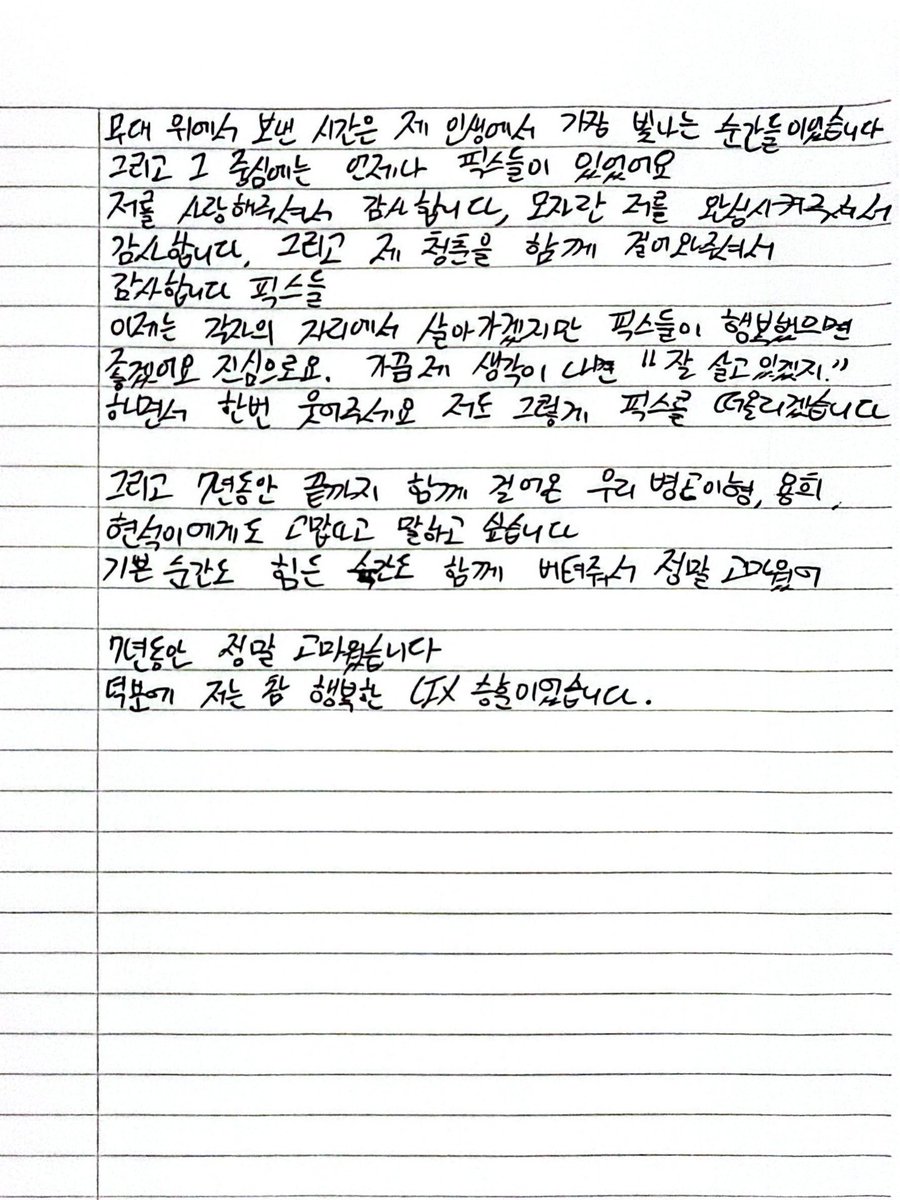 무대 위에서 보낸 시간은 제 인생에서 가장 빛나는 순간들이었습니다
그리고 그 중심에는 언제나 픽스들이 있었어요
저를 사랑해주셔서 감사합니다, 모자란 저를 완성시켜주셔서
감사합니다, 그리고 제 청춘을 함께 걸어와주셔서
감사합니다 픽스들
이제는 각자의 자리에서 살아가겠지만 픽스들이 행복했으면
좋겠어요 진심으로요. 가끔 제 생각이 나면 "잘 살고 있겠지."
하면서 한번 웃어주세요 저도 그렇게 픽스를 떠올리겠습니다
그리고 7년동안 끝까지 함께 걸어온 우리 병곤이형, 용희,
현석이에게도 고맙다고 말하고 싶습니다
기쁜 순간도 힘든 순간도 함께 버텨줘서 정말 고마웠어
7년동안 정말 고마웠습니다
덕분에 저는 참 행복한 CIX 승훈이었습니다.